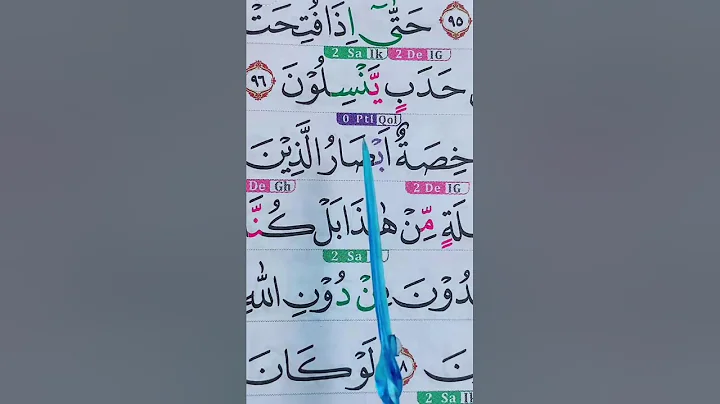 ٩٥ حَتّٰٓى اِذَا فُتِحَتْ
2 Sa Ik 2 De IG
حَدَبٍ يَّنْسِلُوْنَ ٩٦
0 Pti Qol
خِصَةٌ اَبْصَارُ الَّذِيْنَ
De Gh 2 De IG
لَةٍ مِّنْ هٰذَا بَلْ كُنَّا
2 Sa
دُوْنَ مِنْ دُوْنِ اللّٰهِ
نَ لَوْ كَانَ
2 Sa Ik